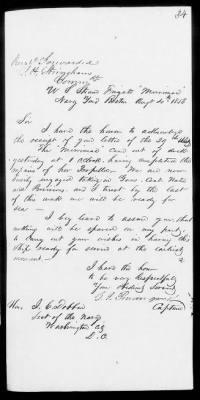 34
Resp'y Forwarded
S. H. Stringham
Comm'dt
U S Steam Frigate "Merrimac"
Navy Yard Boston Augt 30th 1856
Sir
I have the honor to acknowledge
the receipt of your letter of the 29th
The "Merrimac" came out of dock
yesterday at 1 o'clock having completed the
repairs of her Propeller. We are now
busily engaged taking in Guns, Coal, Water
and Provisions, and I trust by the last
of this week we will be ready for
sea —
I beg leave to assure you that
nothing will be spared on my part,
to carry out your wishes in having this
ship ready for service at the earliest
moment. —
I have the honor
to be very Respectfully
Your Obedient Servant
Captain
Hon. J. C. Dobbin
Sect of the Navy
Washington City
D. C.